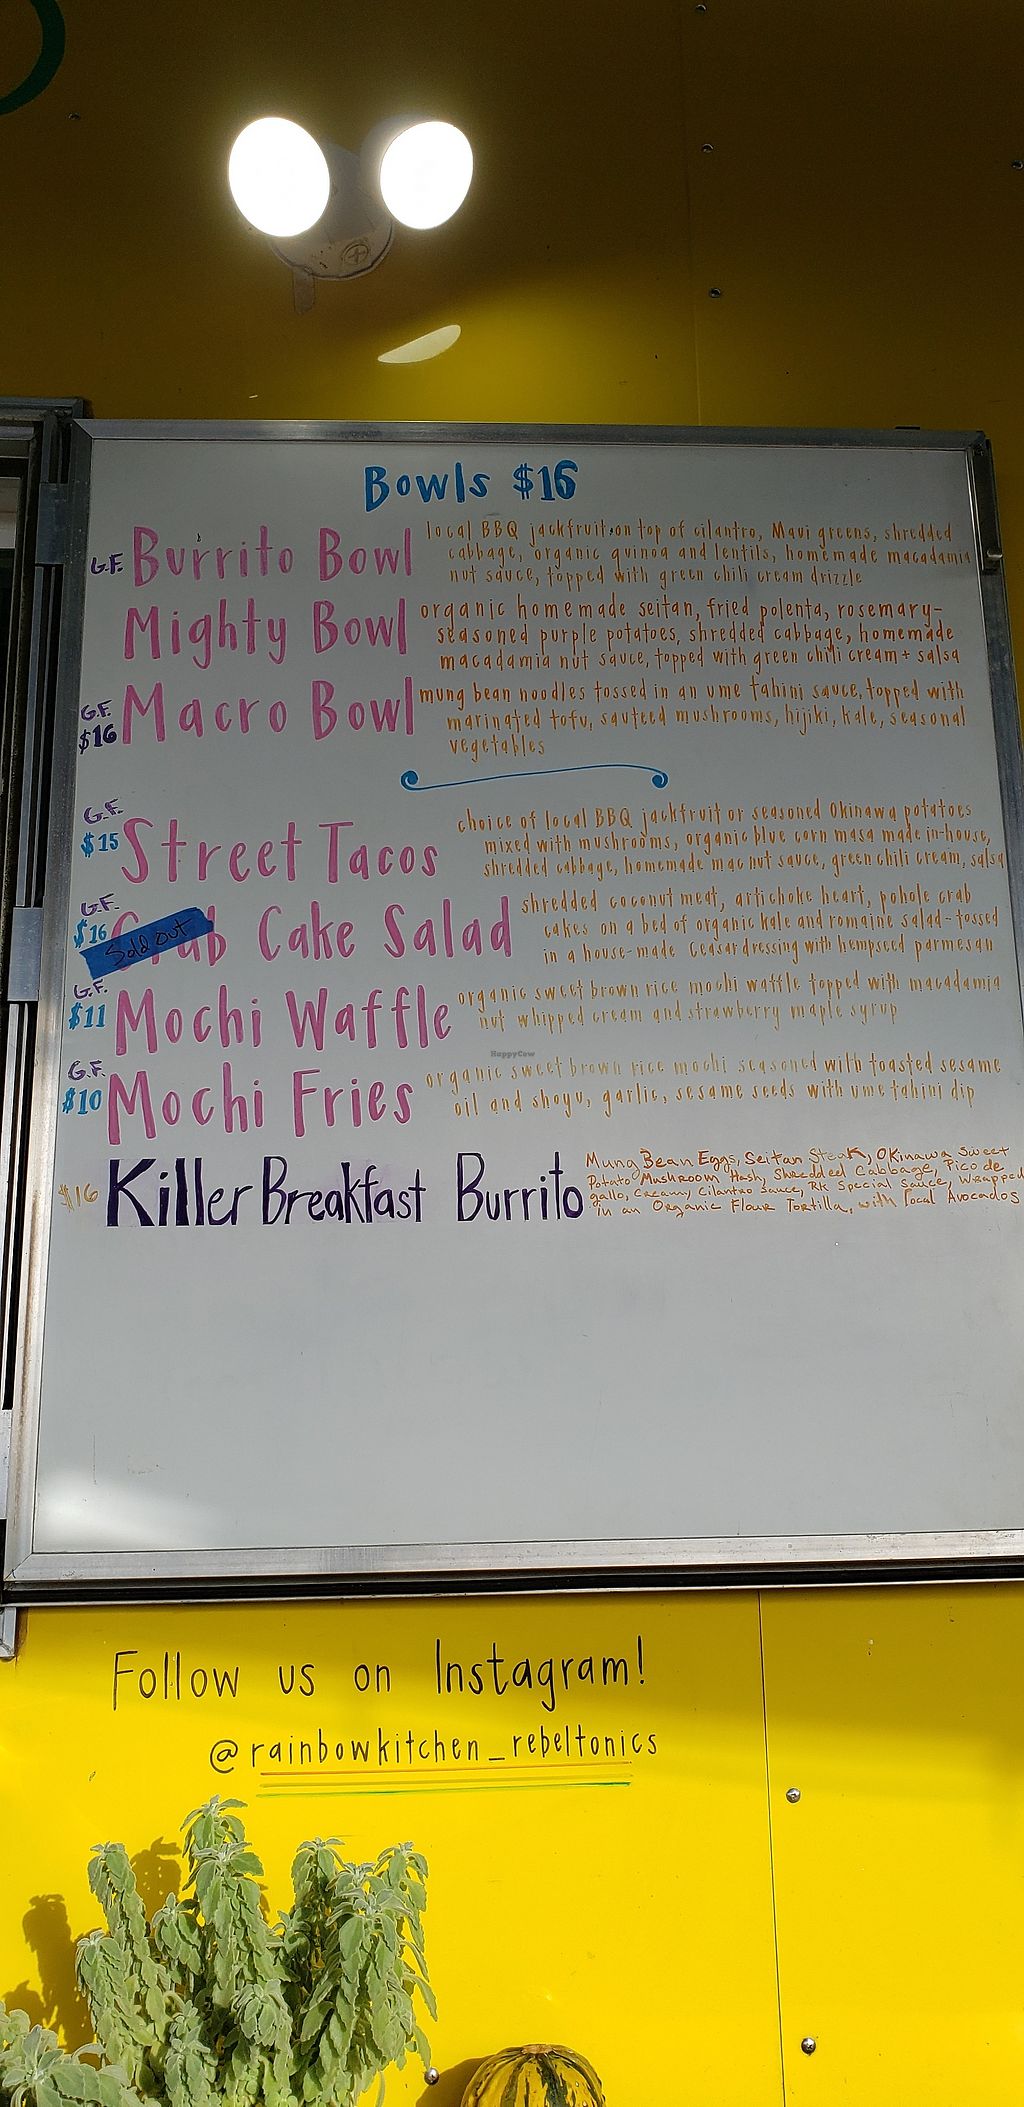 Bowls $16
G.F. Burrito Bowl
local BBQ jackfruit on top of cilantro, Maui greens, shredded
cabbage, organic quinoa and lentils, homemade macadamia
nut sauce, topped with green chili cream drizzle
Mighty Bowl
organic homemade seitan, fried polenta, rosemary-
seasoned purple potatoes, shredded cabbage, homemade
macadamia nut sauce, topped with green chili cream + salsa
G.F.
$16 Macro Bowl
mung bean noodles tossed in an ume tahini sauce, topped with
marinated tofu, sauteed mushrooms, hijiki, kale, seasonal
vegetables
G.F.
$15 Street Tacos
choice of local BBQ jackfruit or seasoned Okinawa potatoes
mixed with mushrooms, organic blue corn masa made in-house,
shredded cabbage, homemade mac nut sauce, green chili cream, salsa
G.F.
$16 Cake Salad
Sold out
shredded coconut meat, artichoke heart, pohole crab
cakes on a bed of organic kale and romaine salad-tossed
in a house-made Ceasar dressing with hempseed parmesan
G.F.
$11 Mochi Waffle
organic sweet brown rice mochi waffle topped with macadamia
nut whipped cream and strawberry maple syrup
HappyCow
G.F.
$10 Mochi Fries
organic sweet brown rice mochi seasoned with toasted sesame
oil and shoyu, garlic, sesame seeds with ume tahini dip
$16 Killer Breakfast Burrito
Mung Bean Eggs, Seitan Steak, Okinawa Sweet
Potato Mushroom Hash, Shredded Cabbage, Pico de
gallo, Creamy Cilantro Sauce, RK Special Sauce, Wrapped
in an Organic Flour Tortilla, with local Avocados
Follow us on Instagram!
@rainbowkitchen_rebeltonics